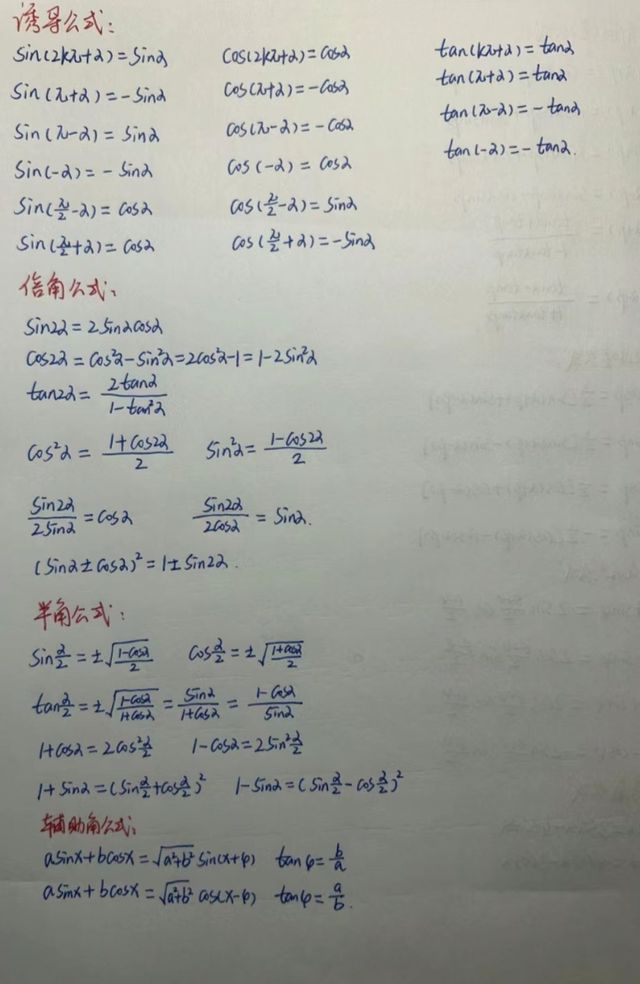 诱导公式:
sin(2kπ+α)=sinα cos(2kπ+α)=cosα tan(kπ+α)=tanα
sin(π+α)=-sinα cos(π+α)=-cosα tan(π+α)=tanα
sin(π-α)=sinα cos(π-α)=-cosα tan(π-α)=-tanα
sin(-α)=-sinα cos(-α)=cosα tan(-α)=-tanα.
sin(π/2-α)=cosα cos(π/2-α)=sinα
sin(π/2+α)=cosα cos(π/2+α)=-sinα
倍角公式:
sin2α=2sinαcosα
cos2α=cos²α-sin²α=2cos²α-1=1-2sin²α
tan2α=2tanα/(1-tan²α)
cos²α=(1+cos2α)/2 sin²α=(1-cos2α)/2
sin2α/(2sinα)=cosα sin2α/(2cosα)=sinα.
(sinα±cosα)²=1±sin2α.
半角公式:
sin(α/2)=±√((1-cosα)/2) cos(α/2)=±√((1+cosα)/2)
tan(α/2)=±√((1-cosα)/(1+cosα))=sinα/(1+cosα)=(1-cosα)/sinα
1+cosα=2cos²(α/2) 1-cosα=2sin²(α/2)
1+sinα=(sin(α/2)+cos(α/2))² 1-sinα=(sin(α/2)-cos(α/2))²
辅助角公式:
asinx+bcosx=√(a²+b²) sin(x+φ) tanφ=b/a
asinx+bcosx=√(a²+b²) cos(x-φ) tanφ=a/b.